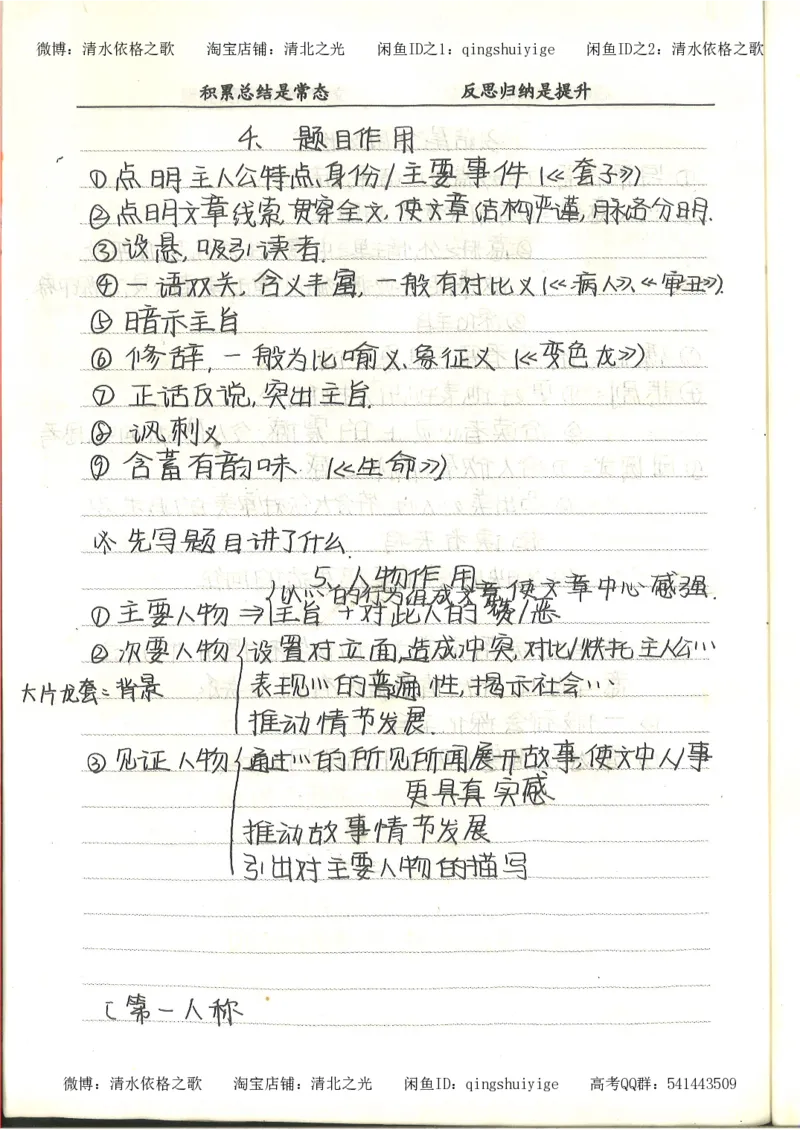 微博：清水依格之歌 淘宝店铺：清北之光 闲鱼ID之1：qingshuiyige 闲鱼ID之2：清水依格之歌
积累总结是常态 反思归纳是提升
4、题目作用
①点明主人公特点、身份/主要事件（《套子》）
②点明文章线索，贯穿全文，使文章结构严谨，脉络分明.
③设悬，吸引读者.
④一语双关，含义丰富，一般有对比义（《病人》、《审丑》）.
⑤暗示主旨
⑥修辞，一般为比喻义、象征义（《变色龙》）
⑦正话反说，突出主旨.
⑧讽刺义
⑨含蓄有韵味（《生命》）
※先写题目讲了什么.
5、人物作用
以…的行为组成文章，使文章中心感强.
①主要人物⇒主旨+对此人的赞/恶
②次要人物 设置对立面，造成冲突，对比/烘托主人公…
大片龙套：背景 表现…的普遍性，揭示社会…
推动情节发展.
③见证人物 通过…的所见所闻展开故事，使文中人/事
更具真实感
推动故事情节发展
引出对主要人物的描写
[第一人称
微博：清水依格之歌 淘宝店铺：清北之光 闲鱼ID：qingshuiyige 高考QQ群：541443509